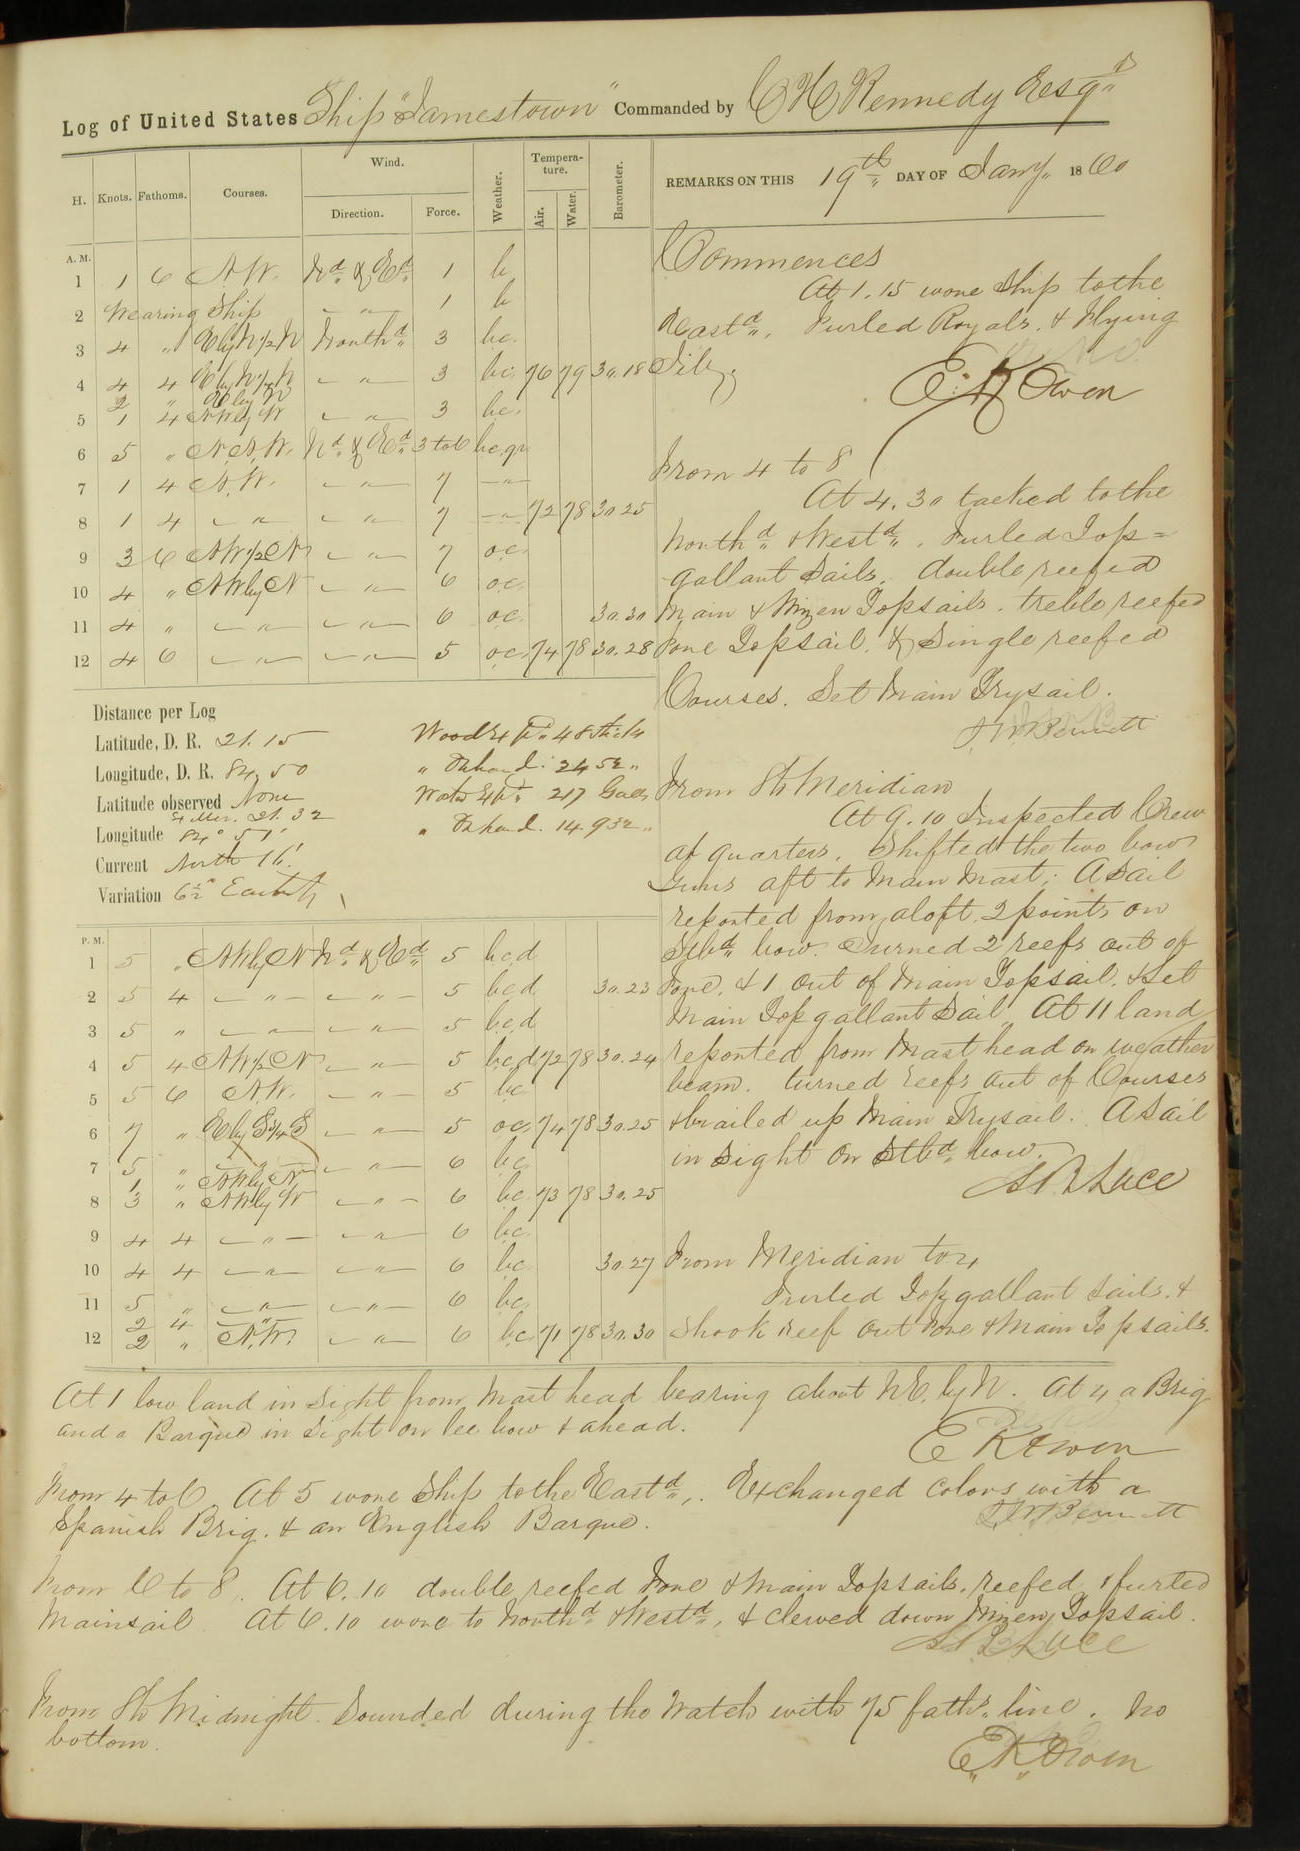 Log of United States Ship "Jamestown" Commanded by C H Kennedy Esqr
H. Knots. Fathoms. Courses. Wind. Direction. Force. Weather. Temperature. Air. Water. Barometer.
REMARKS ON THIS 19th DAY OF Jany 1860
A. M.
1 1 6 N.W. Nd & Ed 1 b
2 Wearing Ship " 1 b
3 4 " E by N 1/2 N Northd 3 bc.
4 4 4 E by N 1/2 N " 3 bc 76 79 30.18
2 " E by N
5 1 4 NW by W " 3 bc.
6 5 " N.N.W. Nd & Ed 3 to 6 bc.qr
7 1 4 N.W. " 7 "
8 1 4 " " 7 " 72 78 30.25
9 3 6 NW 1/2 N " 7 oc.
10 4 " NW by N " 6 oc.
11 4 " " " 6 oc. 30.30
12 4 6 " " 5 oc. 74 78 30.28
Distance per Log
Latitude, D. R. 21.15
Longitude, D. R. 84.50
Latitude observed None
4 Mer. 21.32
Longitude 84° 51'
Current North 16'
Variation 6 1/2° Easterly
Wood Expd 48 Sticks
" On hand. 2452 "
Water Expd 217 Galls
" On hand. 14.932 "
Commences
At 1.15 wore Ship to the
Eastd. Furled Royals, & Flying
Jib.
E. K Owen
From 4 to 8
At 4.30 tacked to the
Northd & Westd. Furled Top=
gallant Sails, double reefed
Main & Mizen Topsails, treble reefed
Fore Topsail, & Single reefed
Courses. Set Main Trysail.
From 8 to Meridian
At 9.10 Inspected Crew
at quarters. Shifted the two bow
Guns aft to Main Mast; A Sail
reported from aloft 2 points on
Stbd bow. Turned 2 reefs out of
Fore, & 1 out of Main Topsail, & Set
Main Top gallant Sail. At 11 land
reported from Mast head on weather
beam. turned reefs out of Courses
& brailed up Main Trysail. A Sail
in Sight on Stbd bow.
S B Luce
From Meridian to 4
Furled Top gallant Sails, &
Shook reef out Fore & Main Topsails.
P. M.
1 5 " NW by N Nd & Ed 5 bc.d
2 5 4 " " 5 bcd 30.23
3 5 " " " 5 bc,d
4 5 4 NW 1/2 N " 5 bc,d 72 78 30.24
5 5 6 N.W. " 5 bc
6 7 " E by S 3/4 S " 5 oc. 74 78 30.25
7 5 " NW by N " 6 bc.
1 "
8 3 " NW by W " 6 bc. 73 78 30.25
9 4 4 " " 6 bc
10 4 4 " " 6 bc 30.27
11 5 " " " 6 bc.
2 4 "
12 2 " N.W. " 6 bc 71 78 30.30
At 1 low land in Sight from Mast head bearing about N E. by N. At 4 a Brig
and a Barque in Sight on lee bow & ahead.
E K Owen
From 4 to 6 At 5 wore Ship to the Eastd. Exchanged Colors with a
Spanish Brig. & an English Barque.
From 6 to 8. At 6.10 double reefed Fore & Main Topsails, reefed & furled
Mainsail. At 6.10 wore to Northd & Westd, & clewed down Mizen Topsail.
S B Luce
From 8 to Midnight. Sounded during the Watch with 75 fathm. line. No
bottom.
E. K. Owen